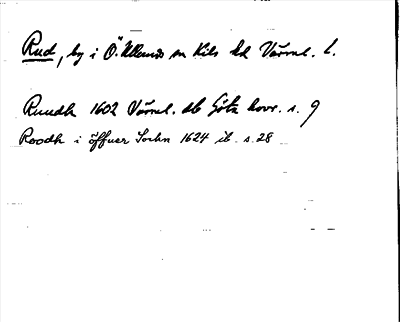 Rud, by i Ö. Ullerud sn Kils hd Värml. l.
Ruudh 1602 Värml. db Göta hovr. s. 9
Roodh i öffuer Sochn 1624 ib. s. 28